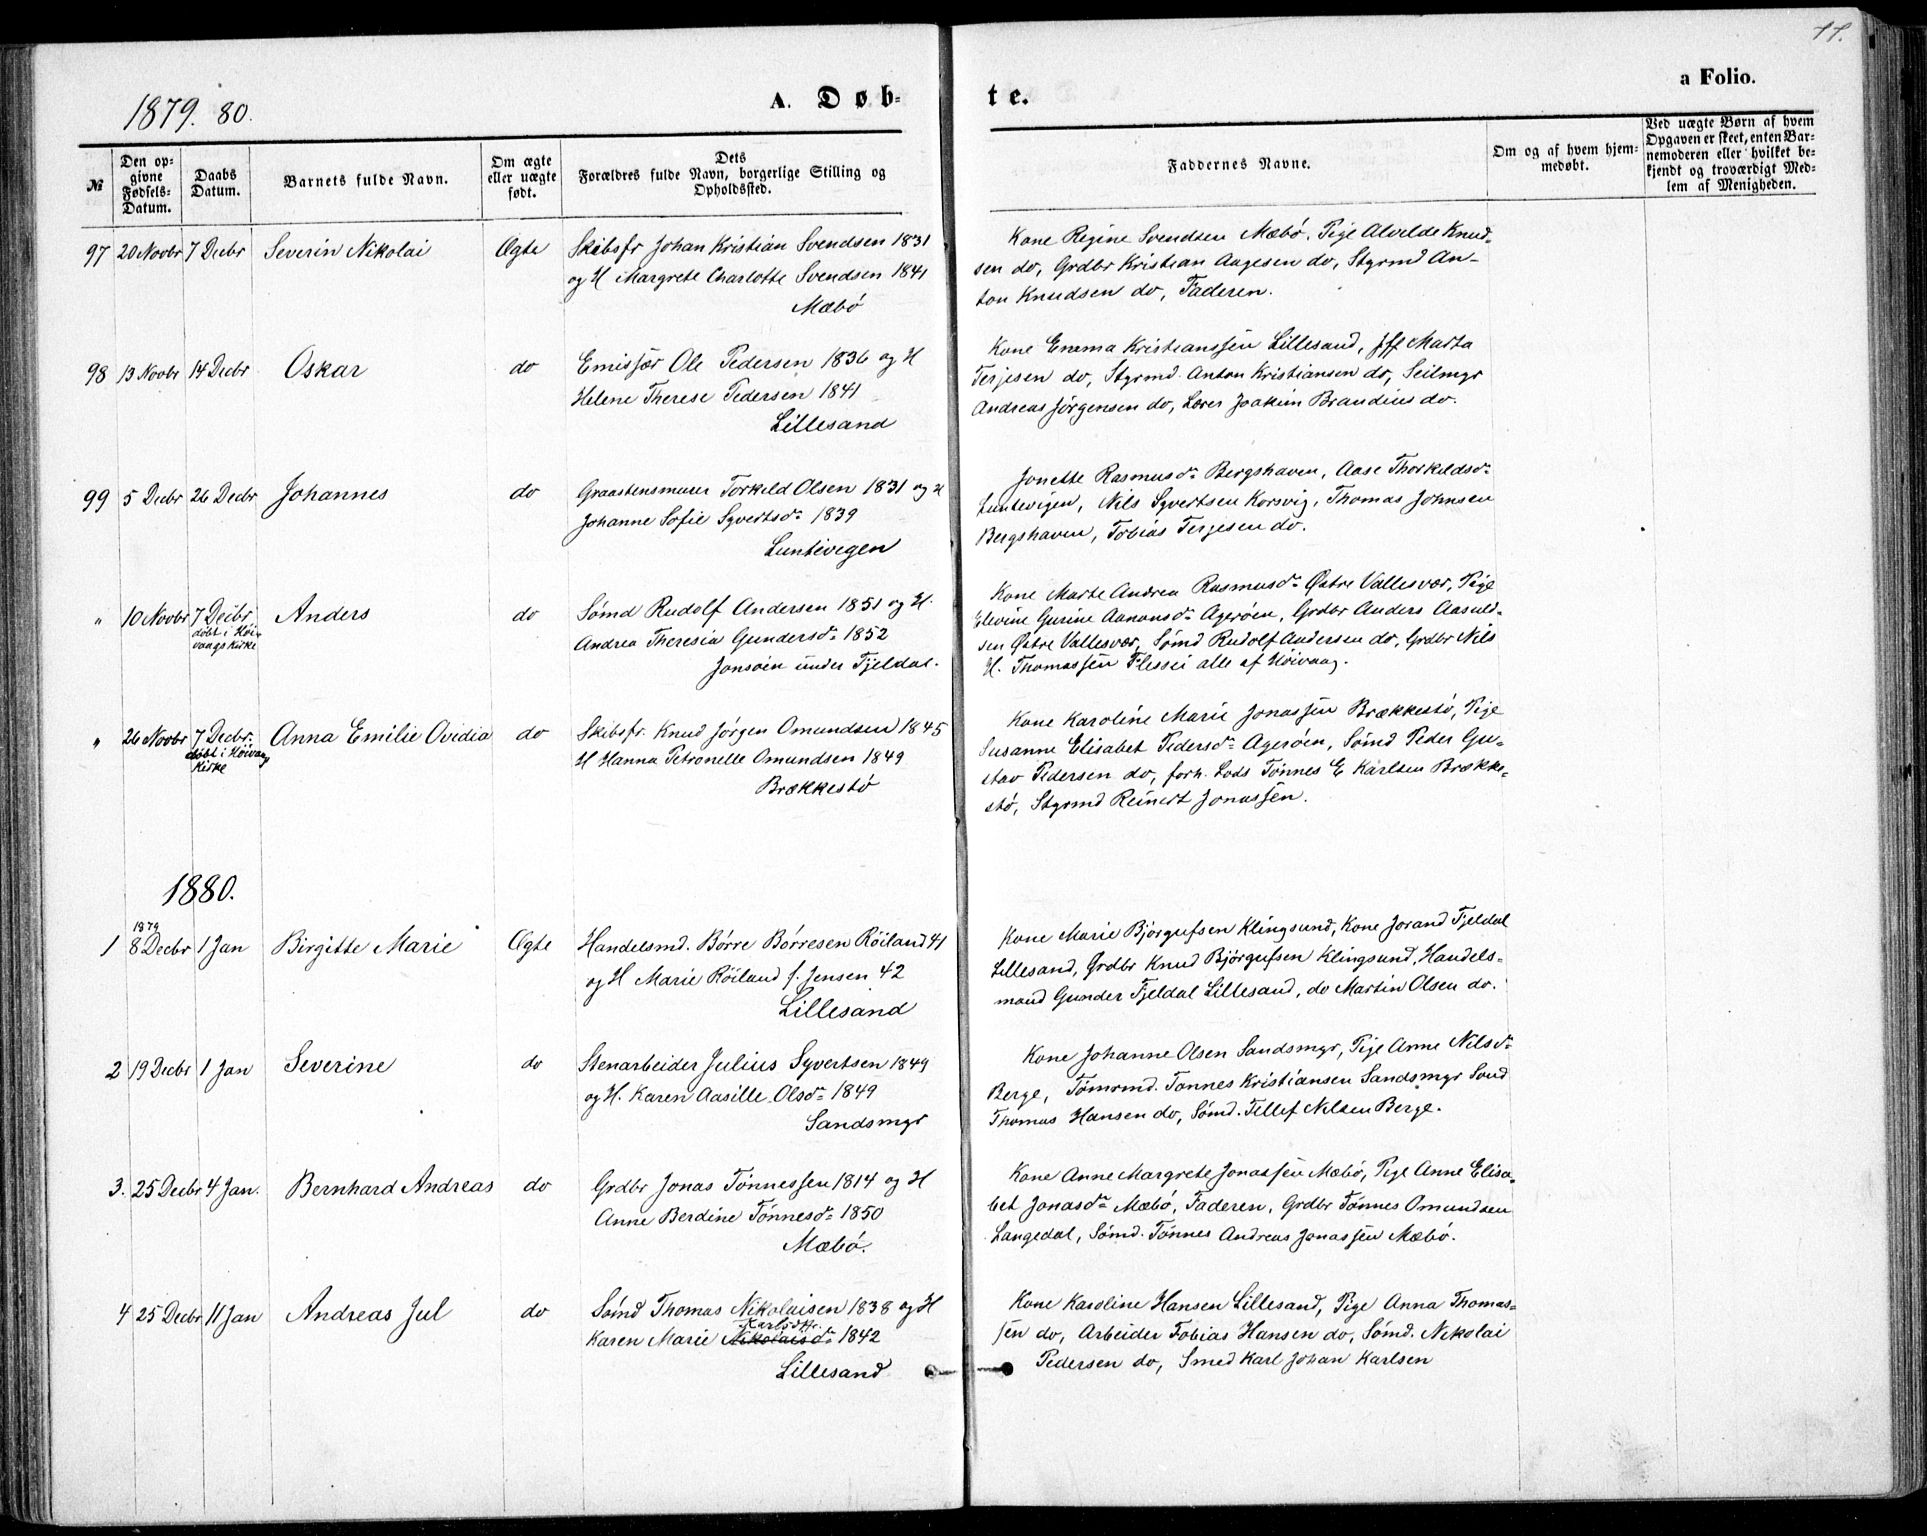 1879. 80.
A. Døb-
te.
a Folio.
11.
№
Den op-
givne
Fødsels-
Datum.
Daabs
Datum.
Barnets fulde Navn.
Om ægte
eller uægte
født.
Dets
Forældres fulde Navn, borgerlige Stilling og
Opholdssted.
Faddernes Navne.
Om og af hvem hjem-
medøbt.
Ved uægte Børn af hvem
Opgaven er skeet, enten Bar-
nemoderen eller hvilket be-
kjendt og troværdigt Med-
lem af Menigheden.
97 20 Novbr 7 Decbr Severin Nikolai Ægte
Skibsfr Johan Kristian Svendsen 1831
og H Margrete Charlotte Svendsen 1841
Mæbø
Kone Regine Svendsen Mæbø, Pige Alvilde Knud-
sen do, Grdbr Kristian Aagesen do, Styrmd An-
ton Knudsen do, Faderen.
98 13 Novbr 14 Decbr Oskar do
Emissær Ole Pedersen 1836 og H
Helene Therese Pedersen 1841
Lillesand
Kone Emma Kristianssen Lillesand, Jff Marta
Terjesen do, Styrmd. Anton Kristiansen do, Seilmgr
Andreas Jørgensen do, Lærer Joakim Brandius do.
99 5 Decbr 26 Decbr Johannes do
Graastensmurer Torkild Olsen 1831 og H
Johanne Sofie Syvertsdr 1839
Luntevigen
Jonette Rasmusdr Bergshaven, Aase Thorkildsdr
Luntevigen, Nils Syvertsen Korsvig, Thomas Johnsen
Bergshaven, Tobias Terjesen do.
" 10 Novbr 7 Decbr Anders do
døbt i Høi-
vaags Kirke
Sømd Rudolf Andersen 1851 og H.
Andrea Theresia Gundersdr 1852
Jonsøen under Tjeldal.
Kone Marte Andrea Rasmusdr Østre Vallesvær, Pige
Elevine Gurine Aanonsdr Agerøen, Grdbr Anders Aasuld-
sen Østre Vallesvær, Sømd Rudolf Andersen do, Grdbr Nils
H. Thomassen alle af Høivaag.
" 26 Novbr 7 Decbr. Anna Emilie Ovidia do
døbt i Høivaag
Kirke
Skibsfr. Knud Jørgen Omundsen 1845
H Hanna Petronelle Omundsen 1849
Brækkestø
Kone Karoline Marie Jonassen Brækkestø, Pige
Susanne Elisabet Pedersdr Agerøen, Sømd Peder Gu-
stav Pedersen do, forh. Lods Tønnes E Karlsen Brække-
stø, Styrmd Reinert Jonassen.
1880.
1879
1 8 Decbr 1 Jan Birgitte Marie Ægte
Handelsmd. Børre Børresen Røiland 41
og H Marie Røiland f. Jensen 42
Lillesand
Kone Marie Bjørgufsen Klingsund, Kone Jorand Tjeldal
Lillesand, Grdbr Knud Bjørgufsen Klingsund, Handels-
mand Gunder Tjeldal Lillesand, do Martin Olsen do.
2 19 Decbr 1 Jan Severine do
Stenarbeider Julius Syvertsen 1849
og H. Karen Aasille Olsdr 1849
Sandsmgr
Kone Johanne Olsen Sandsmgr, Pige Anne Nilsdr
Berge, Tømrmd. Tønnes Kristiansen Sandsmgr Sømd
Thomas Hansen do, Sømd. Tellef Nilsen Berge.
3. 25 Decbr 4 Jan. Bernhard Andreas do
Grdbr Jonas Tønnessen 1814 og H
Anne Berdine Tønnesdr 1850
Mæbø.
Kone Anne Margrete Jonassen Mæbø, Pige Anne Elisa-
bet Jonasdr Mæbø, Faderen, Grdbr Tønnes Omundsen
Langedal, Sømd. Tønnes Andreas Jonassen Mæbø.
4 25 Decbr 11 Jan Andreas Jul do
Sømd Thomas Nikolaisen 1838 og H
Karlsdtr.
Karen Marie Nikolaisdr 1842
Lillesand
Kone Karoline Hansen Lillesand, Pige Anna Thomas-
sen do, Arbeider Tobias Hansen do, Sømd. Nikolai
Pedersen do, Smed Karl Johan Karlsen